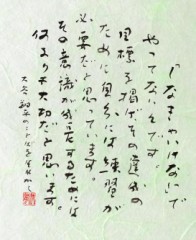 「なきゃいけない」で
やってないんです。
目標を掲げ、その達成の
ために自分には練習が
必要だと思っています。
その意識が成長するためには
何より大切だと思います。
大谷翔平のことば